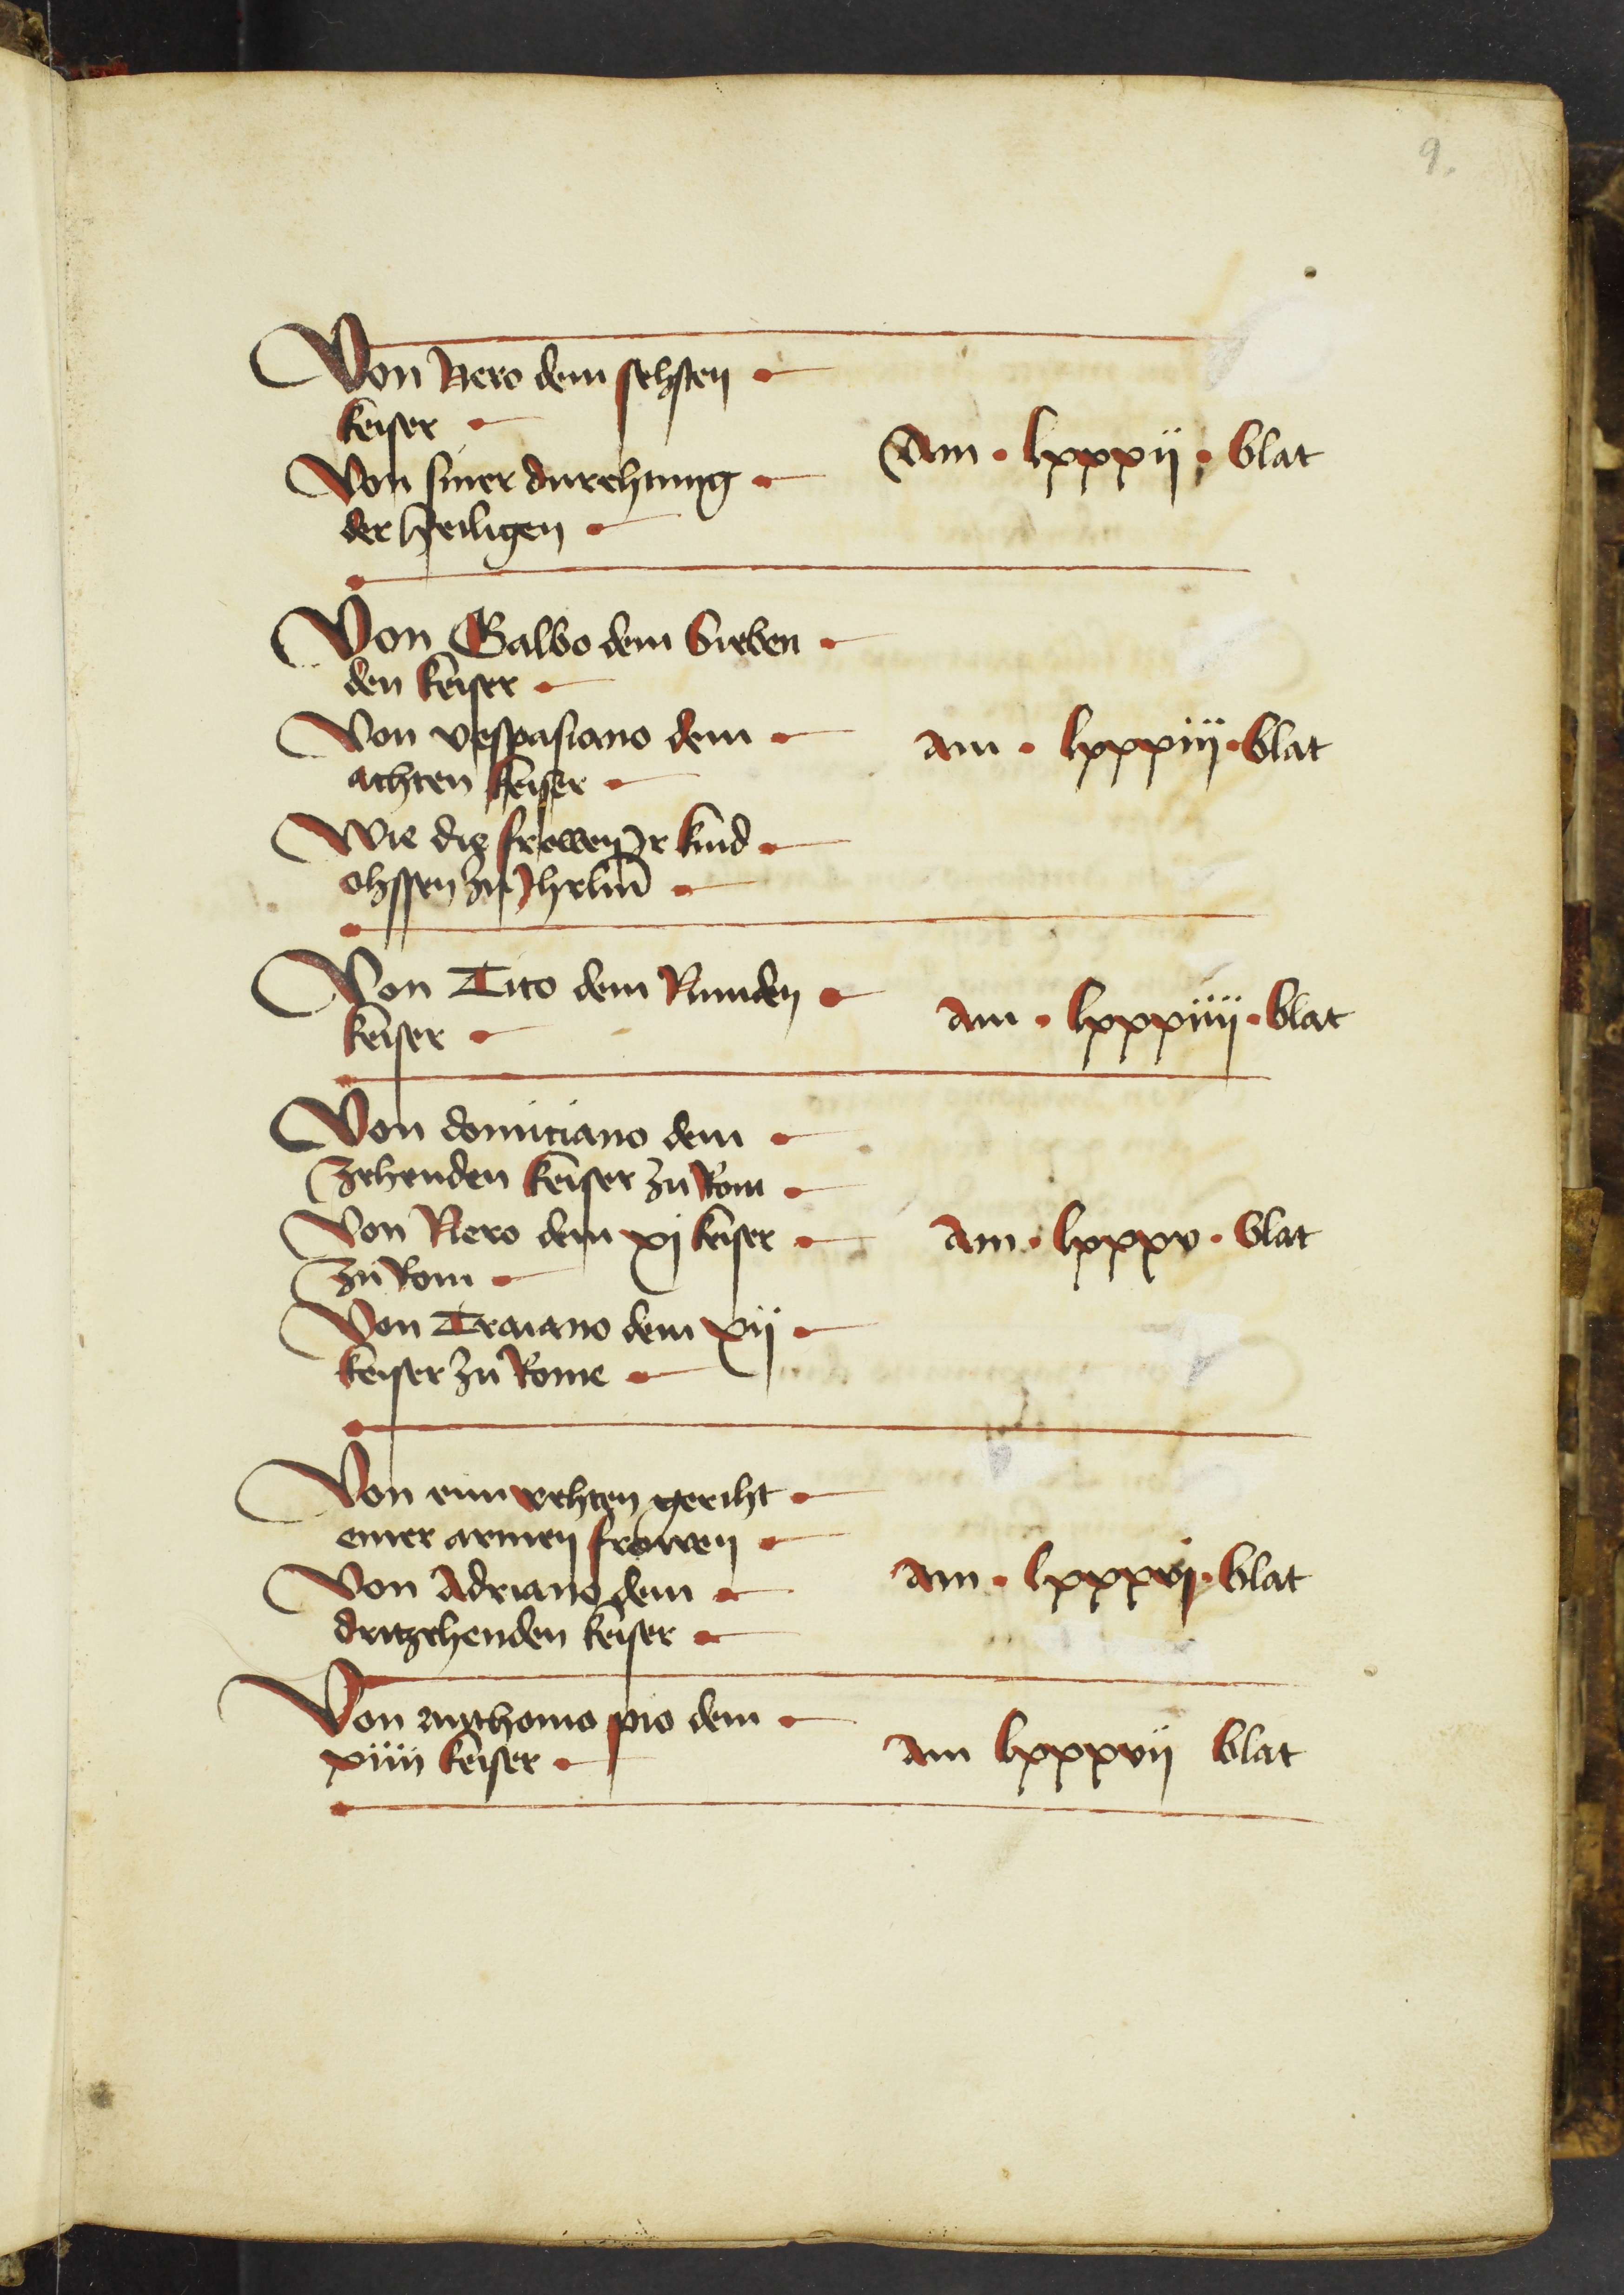 9.
Von Nero dem sehsten
keiser
Am · lxxxii · blat
Von siner durehtung
der heiligen
Von Galbo dem Sieben
den keiser
Von vespasiano dem
am · lxxxiii · blat
achten keiser
Wie die frowen Jr kind
ohssen zu Jhrlm̄
Von Tito dem Nunden
keiser
am · lxxxiiii · blat
Von domiciano dem
zehenden keiser zu Rom
Von Nero dem xj keiser
am · lxxxv · blat
zu Rom
Von Traiano dem xii
keiser zu Rome
Von eim rehten geriht
einer armen frowen
Von Adriano dem
am · lxxxvj · blat
dritzehenden keiser
Von anthonio pio dem
xiiii keiser
am lxxxvii blat